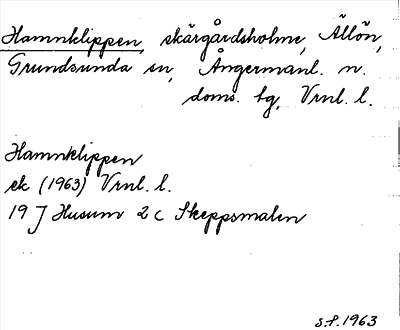 Hamnklippen, skärgårdsholme, Ällön,
Grundsunda sn, Ångermanl. n.
doms. hg, Vrnl. l.
Hamnklippen
ek (1963) Vrnl. l.
19 J Husum 2 c Skeppsmalen
S.F. 1963